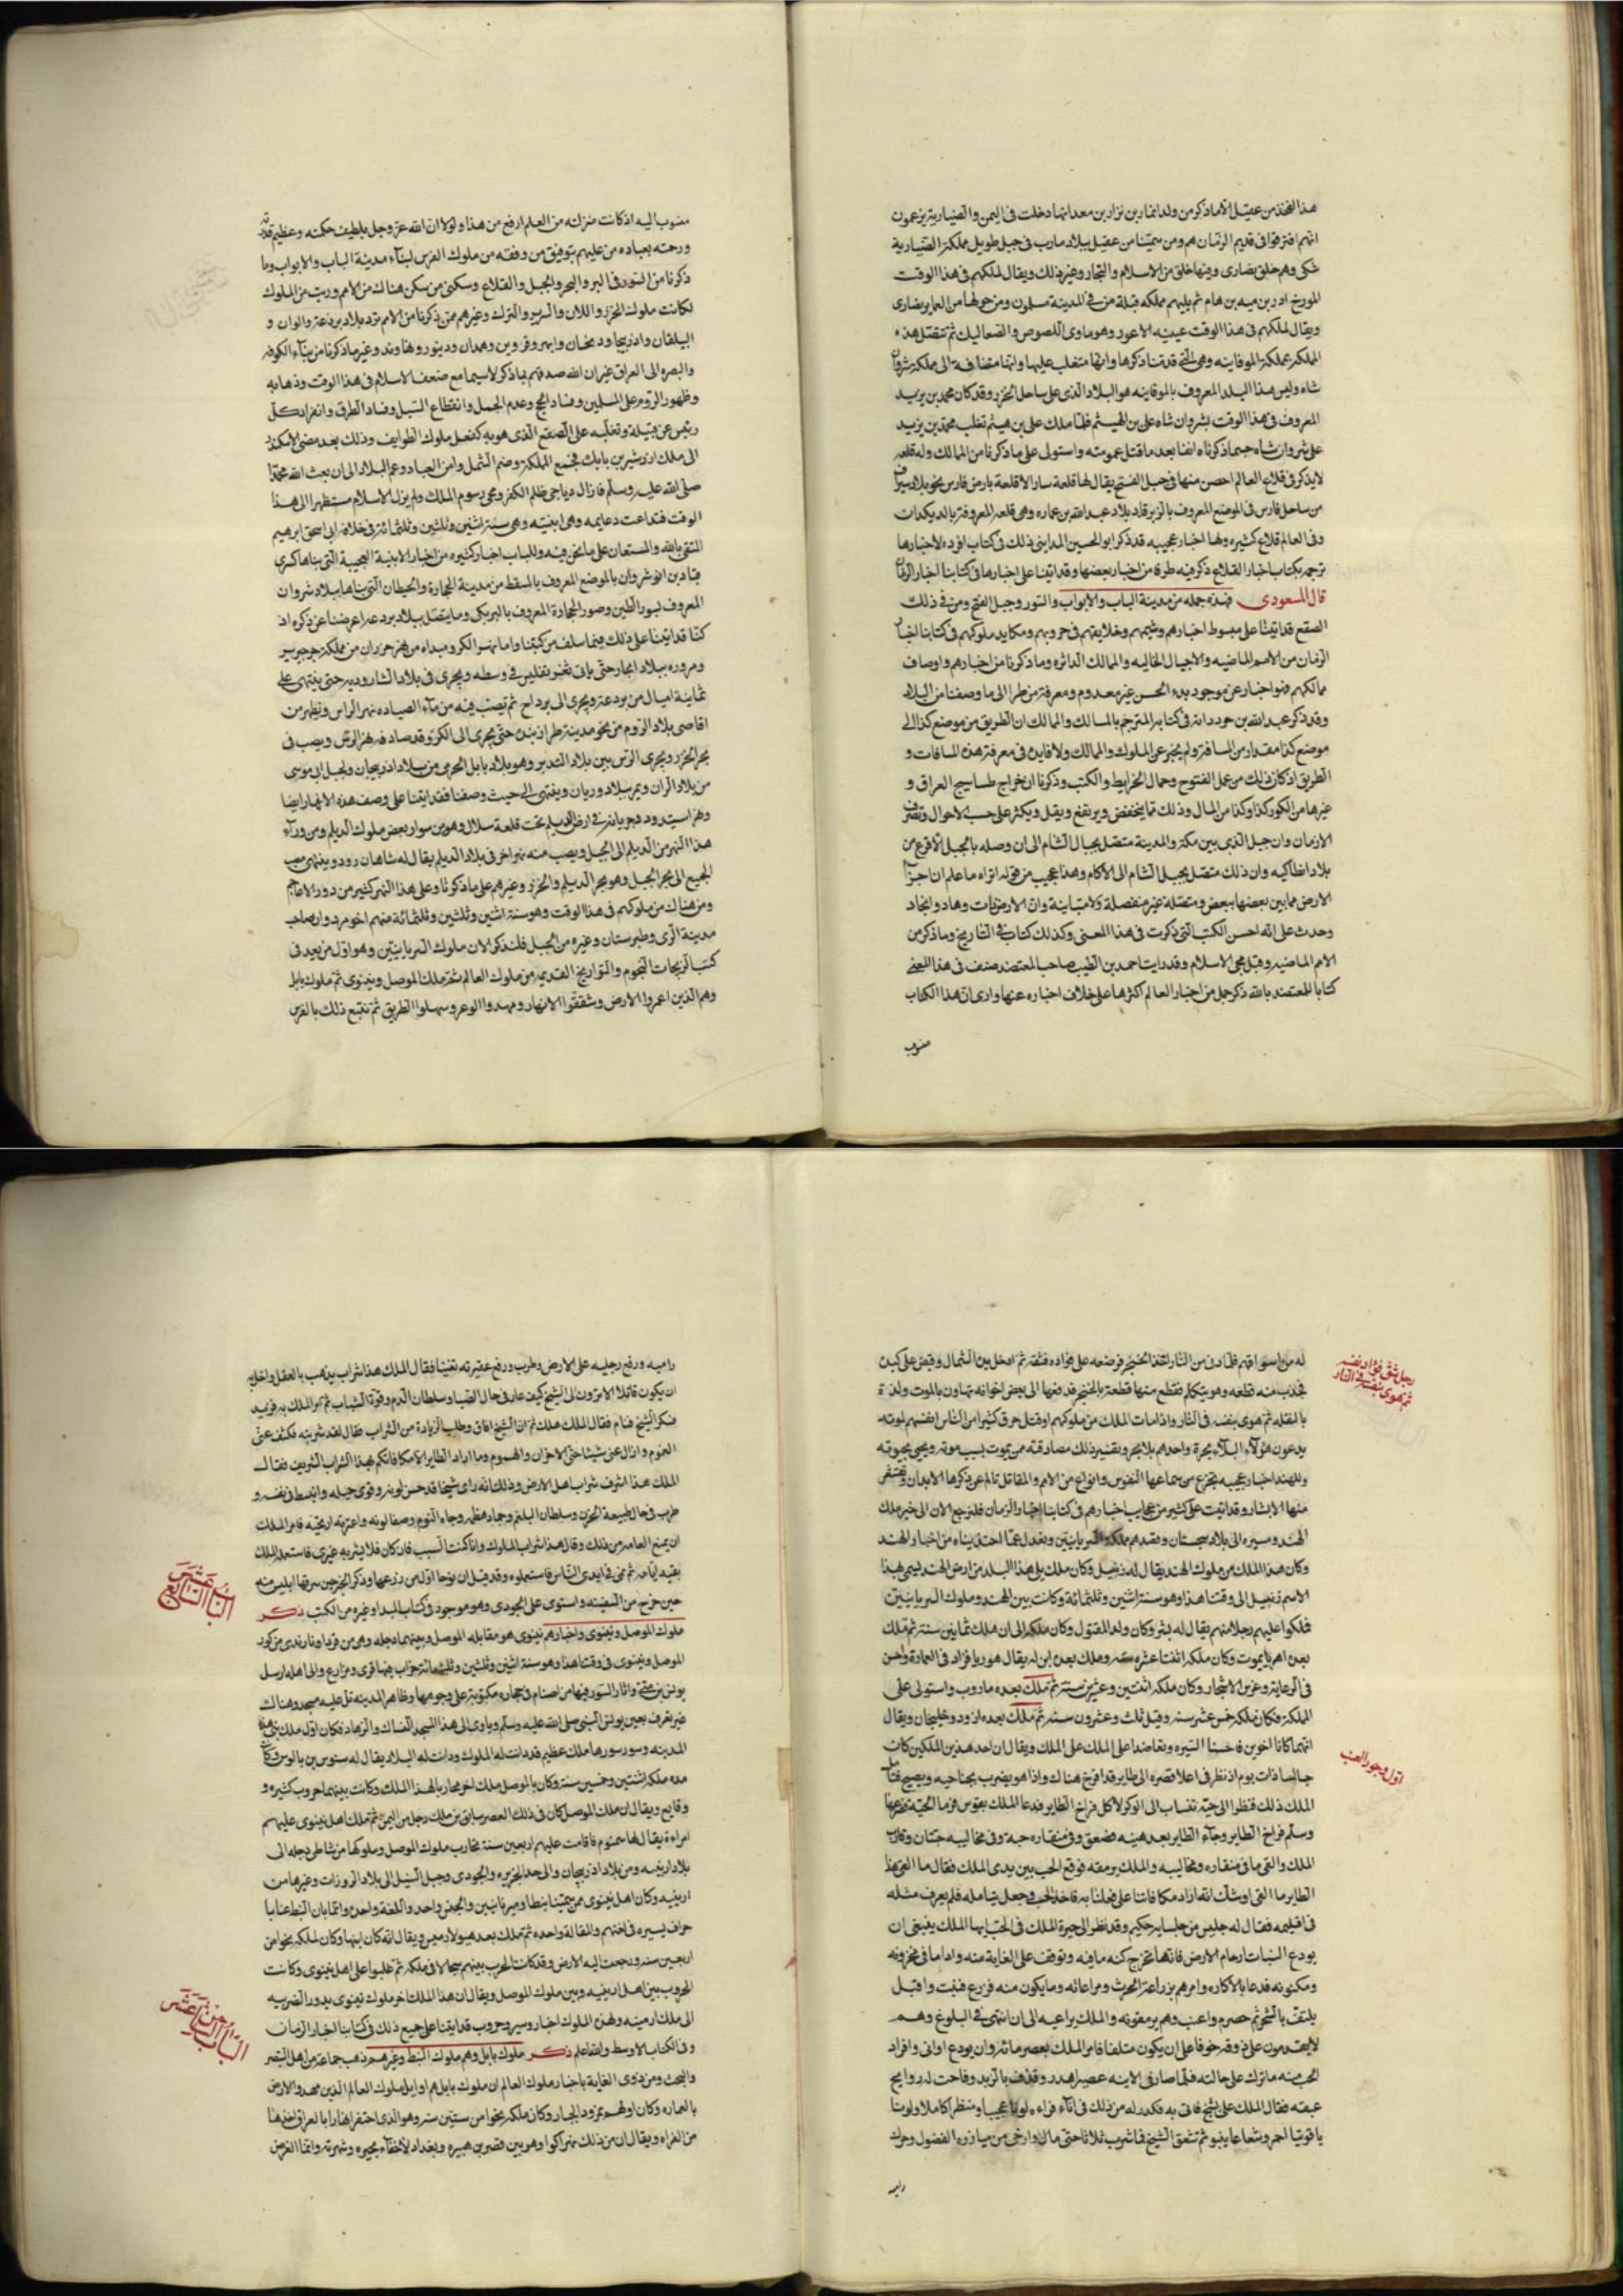 هذا الفخذ من عقيل الاما ذكر من ولد انمار بن نزار بن معد انها دخلت في اليمن والصنارية يزعمون
انهم افترقوا في قديم الزمان هم ومن سمينا من عقيل ببلاد مارب في جبل طويل مملكة الصنارية
شكى وهم خلق نصارى وفيها خلق من الاسلام والتجار وغير ذلك ويقال لملكهم في هذا الوقت
المورخ ادر بن ميه بن هام ثم يليهم مملكه قبلة من في المدينة مسلمون ومن حولها من العماير نصارى
ويقال لملكهم في هذا الوقت عيينه الاعور وهو ماوى اللصوص والصعاليك ثم تتصل هذه
المملكة بمملكة الموقانيه وهى التى قدمنا ذكرها وانها متغلب عليها وانها مضافة الى مملكة شروان
شاه وليس هذا البلد المعروف بالموقانيه هو البلاد الذى على ساحل الخزر وقد كان محمد بن يزيد
المعروف في هذا الوقت بشروان شاه على بن الهيثم فلما هلك على بن هيثم تغلب محمد بن يزيد
على شروان شاه حسبما ذكرناه انفا بعد ما قتل عمومته واستولى على ما ذكرنا من الممالك وله قلعه
لا يذكر في قلاع العالم احصن منها في جبل الفتح يقال لها قلعة سار الا قلعة بارض فارس نحو بلاد سيراف
من ساحل فارس في الموضع المعروف بالزيرقاد بلاد عبد الله بن عماره وهى قلعه المعروفة بالديكدان
وفى العالم قلاع كثيره ولها اخبار عجيبه قد ذكر ابو الحسين المداينى ذلك في كتاب افرده لاخبارها
ترجمه بكتاب اخبار القلاع ذكر فيه طرفا من اخبار بعضها وقد اتينا على اخبارها في كتابنا اخبار الزمان
قال المسعودى فهذه جمله من مدينة الباب والابواب والسور وجبل الفتح ومن في ذلك
الصقع قد اتينا على مبسوط اخبارهم وشيمهم وخلايقهم في حروبهم ومكايد ملوكهم في كتابنا اخبار
الزمان من الامم الماضيه والاجيال الخاليه والممالك الداثره وما ذكرنا من اخبارهم واوصاف
ممالكهم فهو اخبار عن موجود بدء الحسن غير معدوم ومعرفة من طرا الى ما وصفنا من البلاد
وقد ذكر عبد الله بن خرددانه في كتابه المترجم بالمسالك والممالك ان الطريق من موضع كذا الى
موضع كذا مقدار من المسافة ولم يخبر عن الملوك والممالك ولا فايده في معرفة هذه المسافات و
الطريق اذ كان ذلك من عمل الفتوح وحمال الخرايط والكتب وذكرنا ان خراج طساسيج العراق و
غيرها من الكور كذا وكذا من المال وذلك مما ينخفض ويرتفع ويقل ويكثر على حسب الاحوال وتصرف
الازمان وان جبل الذى بين مكة والمدينة متصل بجبال الشام الى ان وصله بالجبل الاقرع من
بلاد انطاكيه وان ذلك متصل بجبل الشام الى الاكام وهذا عجيب من قوله اتراه ما علم ان اجزاء
الارض مما بين بعضها ببعض ومتصلة غير منفصلة ولا متباينة وان الارض ذات وهاد وانجاد
وحدث على انه احسن الكتب التى ذكرت في هذا المعنى وكذلك كتاب في التاريخ وما ذكر من
الامم الماضيه وقبل مجى الاسلام وقد رايت احمد بن الطيب صاحب المعتضد صنف في هذا المعنى
كتابا للمعتضد بالله ذكر جمل من اخبار العالم اكثرها على خلاف اخباره عنها وارى ان هذا الكتاب
منسوب
منسوب اليه اذ كانت منزلته من العلم ارفع من هذا ولولا ان الله عز وجل بلطيف حكمته وعظيم قدرته
ورحمته بعباده من عليهم بتوفيق من وفقه من ملوك الفرس لبناء مدينة الباب والابواب وما
ذكرنا من السور في البر والبحر والجبل والقلاع وسكنى من سكن هناك من الامم ورتب من الملوك
لكانت ملوك الخزر واللان والسرير والترك وغيرهم ممن ذكرنا من الامم ترد بلاد بردعة والران و
البيلقان واذربيجان وزنجان وابهر وقزوين وهمدان ودينور ونهاوند وغيرها ذكرنا من بناء الكوفه
والبصره الى العراق غير ان الله صدهم بما ذكر لا سيما مع ضعف الاسلام في هذا الوقت وذهابه
وظهور الروم على المسلمين وفساد الحج وعدم الجمل وانقطاع السبل وفساد الطرق وانفراد كل
رئيس عن قبيلة وتغلبه على الصقع الذى هو به كفعل ملوك الطوايف وذلك بعد مضى الاسكندر
الى ملك اردشير بن بابك فجمع المملكة وضم الشمل وامن العباد وعمر البلاد الى ان بعث الله محمدا
صلى الله عليه وسلم فازال دياجى ظلم الكفر ومحى رسوم الملك ولم يزل الاسلام مستظهرا الى هذا
الوقت فتداعت دعايمه وهى ابنيته وهى سنة اثنين وثلثين وثلثمائة في خلافة ابى اسحق ابرهيم
المتقى بالله والمستعان على ما نحن فيه وللباب اخبار كثيره من اخبار الابنية العجيبة التى بناها كسرى
قباد بن انوشروان بالموضع المعروف بالمسقط من مدينة الحجارة والحيطان التى بناها ببلاد شروان
المعروف بسور الطين وصور الحجارة المعروف بالبرمكى وما يتصل ببلاد بردعه اعرضنا عن ذكره اذ
كنا قد اتينا على ذلك فيما سلف من كتبنا واما نهر الكر ومبداه من
ومروره ببلاد ابخاز حتى ياتى ثغر تفليس في وسطه ويجرى في بلاد السارودية حتى ينتهى على
ثمانية اميال من بردعة ويجرى الى برداج ثم يصب فيه من ماء الصياده نهر الراس ويظهر من
اقاصى بلاد الروم من نحو مدينة طرابزنده حتى يجرى الى الكر وقد صادفه نهر الرس ويصب في
بحر الخزر ويجرى الرس بين بلاد البدين وهو بلاد بابك الخرمى من بلاد اذربيجان وجبل ابى موسى
من بلاد الران ويمر ببلاد وريان وينتهى الى حيث وصفنا فقد اتينا على وصف هذه الانهار ايضا
ونهر اسبيدرود وجريانه في ارض الديلم تحت قلعة سلال وهو من سوار بعض ملوك الديلم ومن وراء
هذا النهر من الديلم الى الجبل ويصب منه نهر اخر في بلاد الديلم يقال له شاهان رود وينتهى مصب
الجميع الى بحر الجبل وهو بحر الديلم والخزر وغيرهم على ما ذكرنا وعلى هذا النهر كثير من دور الاعاجم
ومن هناك من ملوكهم في هذا الوقت وهو سنة اثنين وثلثين وثلثمائة منهم اخو مرداويج صاحب
مدينة الرى وطبرستان وغيره من الجبل فلنذكر الان ملوك السريانيين وهو اول من يعد في
كتب الزيجات النجوم والتواريخ القديم من ملوك العالم ثم ملك الموصل ونينوى ثم ملوك بابل
وهم الذين اعمروا الارض وشققوا الانهار ومهدوا الوعر وسهلوا الطريق ثم نتبع ذلك بالفرس
رجل شق فؤاد نفسه
ثم تهوى بنفسه في النار
له من اسواقهم فلما دنى من النار اخذ الخنجر فوضعه على فؤاده فشقه ثم ادخل يده الشمال وقبض على كبده
فجذب منه قطعه وهو يتكلم فقطع منها قطعة بالخنجر فدفعها الى بعض اخوانه تهاون بالموت ولذة
بالنقله ثم هوى بنفسه في النار واذا مات الملك من ملوكهم او قتل حرق كثيرا من الناس انفسهم لموته
يدعون هؤلاء البلانجرية واحدهم بلانجر وتفسير ذلك مصادقته ممن يموت بسبب موته ويحيى بحيوته
وللهند اخبار عجيبه تجزع من سماعها النفوس وانواع من الالام والمقاتل تالم عن ذكرها الابدان وتقشعر
منها الابشار وقد اتيت على كثير من عجايب اخبارهم في كتابنا اخبار الزمان فلنرجع الان الى خبر ملك
الهند وسيره الى بلاد سجستان وقصده مملكة السريانيين ونعدل عما احتذيناه من اخبار الهند
وكان هذا الملك من ملوك الهند يقال له زنبيل وكان ملك يلى هذا البلد من ارض الهند يسمى بهذا
الاسم زنبيل الى وقتنا هذا وهو سنة اثنين وثلثمائة وكانت بين الهند وملوك السريانيين
فملكوا عليهم رجلا منهم يقال له بشر وكان ولد المقتول وكان ملكه الى ان هلك ثمانين سنة ثم ملك
بعده اهريا يموت وكان ملكه اثنتا عشره سنه وملك بعده ابن له يقال هوريا فزاد في العمارة واحسن
في الرعاية وغرس الاشجار وكان ملكه اثنتين وعشرين سنة ثم ملك بعده ماروب واستولى على
المملكة فكان ملكه خمس عشر سنه وقيل ثلث وعشرون سنه ثم ملك بعده ازور وخلنجان ويقال
انهما كانا اخوين فاحسنا السيره وتعاضدا على الملك ويقال ان احد هذين الملكين كان
اول وجود العنب
جالسا ذات يوم اذ نظر في اعلا قصره الى طاير قد افرخ هناك واذا هو يضرب بجناحيه ويصيح
الملك ذلك فنظر الى حية تنساب الى الوكر لاكل فراخ الطاير فدعا الملك بقوس فرما الحية فصرعها
وسلم فراخ الطاير وجاء الطاير بعد هينه فصفق وفى منقاره حبة وفى مخاليبه حبتان وقارب
الملك والقى ما في منقاره ومخاليبه والملك يرمقه فوقع الحب بين يدى الملك فقال ما القى هذا
الطاير ما القى اوشك انه اراد مكافاتنا على فعلنا به فاخذ الحب وجعل يتامله فلم يعرف مثله
في اقليمه فقال له جليس من جلسايه حكيم وقد نظر الى حيرة الملك في الحب ايها الملك ينبغى ان
يودع النبات ارحام الارض فانها تخرج كنه مافيه ونوقف على الغاية منه واداما في مخزونه
ومكنونه فدعا بالاكاره وامرهم بزراعة الحرث ومراعاته وما يكون منه فزرع فنبت واقبل
يلتف بالشجر ثم حصرم واعنب وهم يرمقونه والملك يراعيه الى ان انتهى في البلوغ وهم
لا يقدمون على ذوقه خوفا على ان يكون متلفا فامر الملك بعصر مائه وان يودع اوانى وافراد
الحب منه ماترك على حالته فلما صار في الانيه عصيرا هدر وقذف بالزبد وفاحت له روايح
عبقه فقال الملك على بشيخ فانى به فكدر له من ذلك في اناء فراه لونا عجيبا ومنظرا كاملا ولونا
ياقوتيا احمر وشعاعا ينبو ثم تشقى الشيخ فما شرب ثلاثا حتى مال وارخى من ميازره الفضول وحرك
راسه
راسه ورفع رجليه على الارض وطرب ورفع عقيرته تغنيا فقال الملك هذا شراب يذهب بالعقل واخلق
ان يكون قاتلا الا ترون الى الشيخ كيف عاد في حال الصبا وسلطان الدم وقوة الشباب ثم امر الملك به فزيد
فسكر الشيخ فنام فقال الملك هلك ثم ان الشيخ افاق وطلب الزيادة من الشراب فقال لقد شربته فكشف عنى
الغموم وازال عنى شيئا حتى الاحزان والهموم وما اراد الطاير الا مكافاتكم بهذا الشراب الشريف فقال
الملك هذا اشرف شراب اهل الارض وذلك انه راى شيخا قد حسن لونه وقوى جبله وانبسط في نفسه و
طرب في حال طبيعة الحزن وسلطان البلغم وجاد هضمه وجاء النوم وصفا لونه واعترته اريحيته فامر الملك
ان يمنع العامه من ذلك وقال هذا شراب الملوك وانا كنت السبب فان كان فلا يشربه غيرى فاستعمله الملك
بقيه ايامه ثم نمى في ايدى الناس فاستعملوه وقد قيل ان نوحا اول من زرعها وذكر الخبر حين سرقها ابليس منه
الباب السابع عشر
حين خرج من السفينه واستوى على الجودى وهو موجود في كتاب المبدا وغيره من الكتب ذكر
ملوك الموصل ونينوى واخبارهم نينوى هو مقابله الموصل وبينهما دجله وهى من قردا وبازبدى من كور
الموصل ونينوى في وقتنا هذا وهو سنة اثنين وثلثين وثلثمائة خراب فيها قرى ومزارع والى اهلها رسل
يونس بن متى واثار السور فيها من اصنام في حجارة مكتوبة على وجوهها وظاهر المدينه تل عليه مسجد وهناك
عين يعرف بعين يونس النبى صلى الله عليه وسلم وياوى الى هذا المسجد النساك والزهاد فكان اول ملك بنى هذه
المدينه وسور سورها ملك عظيم قد دانت له الملوك ودانت له البلاد يقال له سنوس بن بالوس وكان
مده ملكه اثنتين وخمسين سنة وكان بالموصل ملك اخر محاربا لهذا الملك وكانت بينهما حروب كثيره و
وقايع ويقال ان ملك الموصل كان في ذلك العصر سابق بن ملك رجل من اليمن ثم ملك اهل نينوى عليهم
امراءة يقال لها سمنوم فاقامت عليهم اربعين سنة تحارب ملوك الموصل وملوكها من شاطى دجله الى
بلاد ارمنيه ومن بلاد اذربيجان والى حد الجزيره والجودى وجبل التيل الى بلاد الزوزان وغيرها من
ارمنيه وكان اهل نينوى ممن سمينا نبطا وسريانيين والجنس واحد واللغة واحده وانما بان النبط عنا با
حرف يسيره في لغتهم والمقالة واحده ثم ملك بعده سولارميس ويقال انه كان ابنها وكان لملكه نحوا من
اربعين سنه ورجعت اليه الارض وقد كانت الحرب بينهم سجالا في ملكه ثم غلبوا على اهل نينوى وكانت
الحروب بين اهل ارمنيه وبين ملوك الموصل ويقال ان هذا الملك اخر ملوك نينوى يدور الضريبه
الى ملك ارمينه ولهذه الملوك اخبار وسير وحروب قد اتينا على جميع ذلك في كتابنا اخبار الزمان
الباب الثامن عشر
وفى الكتاب الاوسط والله اعلم ذكر ملوك بابل وهم ملوك النبط وغيرهم ذهب جماعة من اهل التبصر
والبحث ومن ذوى الغاية باخبار ملوك العالم ان ملوك بابل هم اوايل ملوك العالم الذين مهدوا الارض
بالعماره وكان اولهم نمرود الجبار وكان ملكه نحوا من ستين سنه وهو الذى احتفر انهارا بالعراق اخذها
من الفراه ويقال ان من ذلك نهر كوثا وهو بين قصر بن هبيره وبغداد لاخفآء بخبره وشهرته وانما الغرض